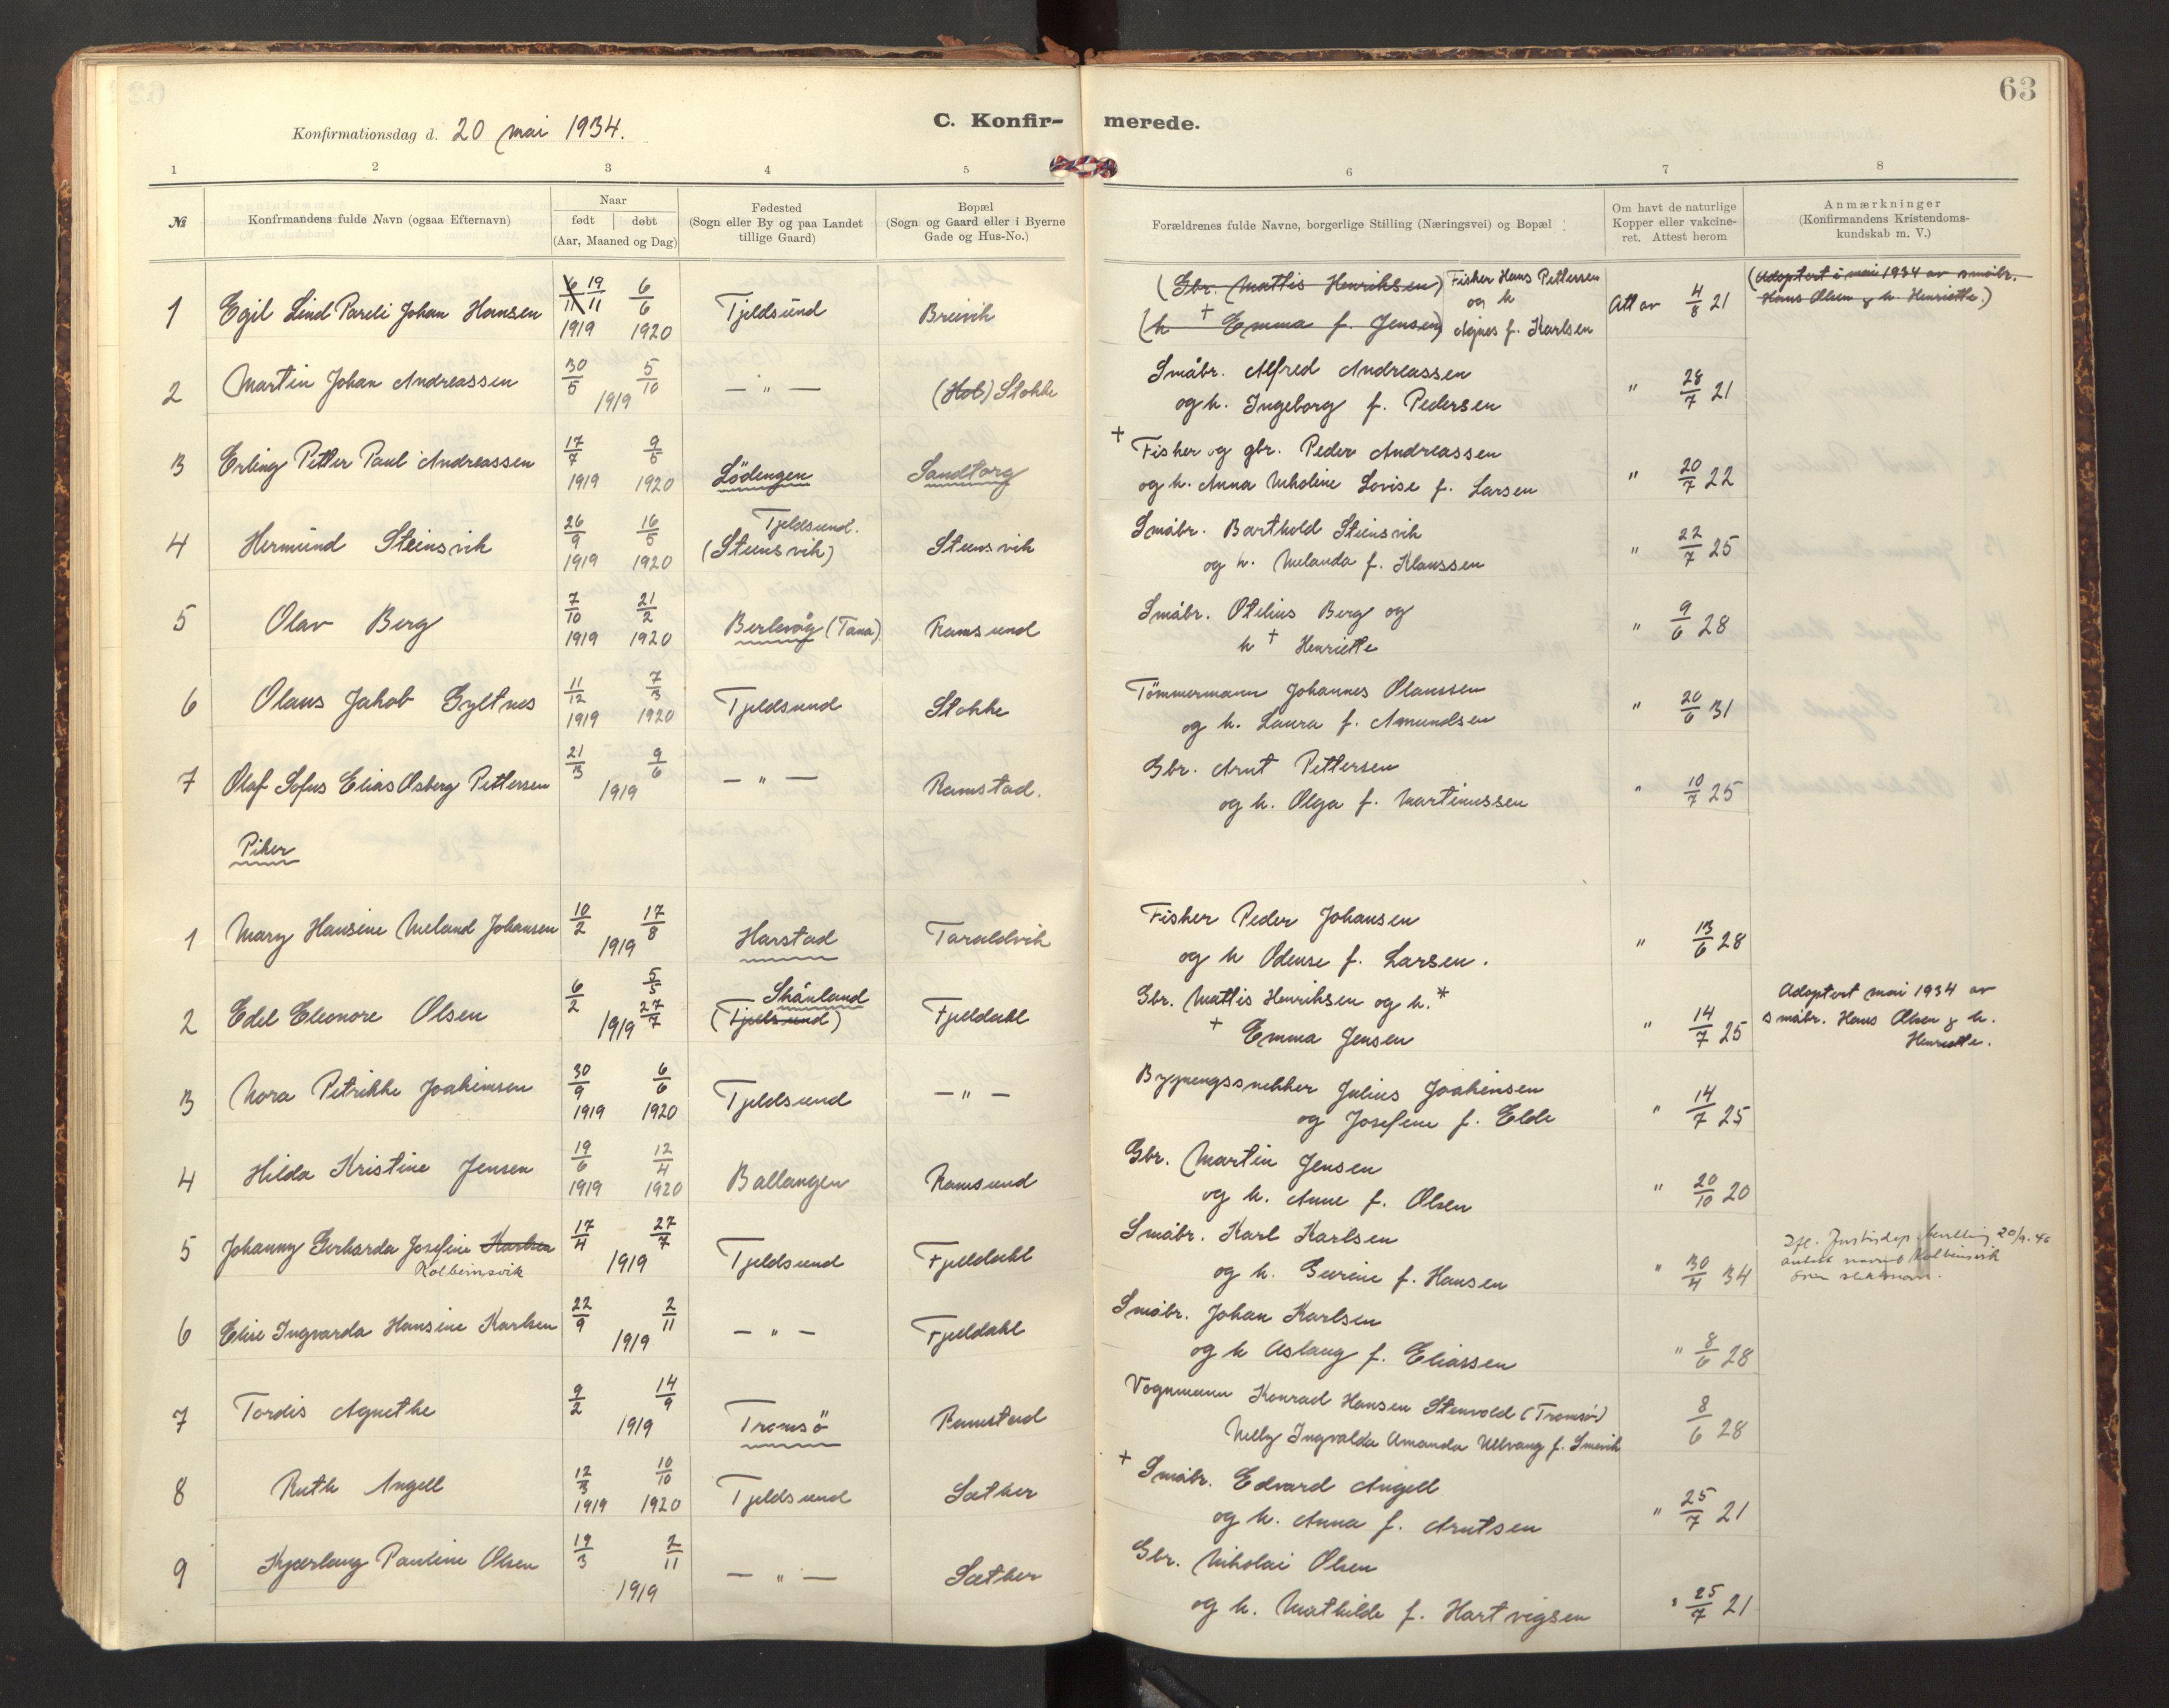 63
C. Konfir- merede.
Konfirmationsdag d. 20 mai 1934.
1 2 3 4 5 6 7 8
№ Konfrmandens fulde Navn (ogsaa Efternavn) Naar født døbt (Aar, Maaned og Dag) Fødested (Sogn eller By og paa Landet tillige Gaard) Bopæl (Sogn og Gaard eller i Byerne Gade og Hus-No.) Forældrenes fulde Navne, borgerlige Stilling (Næringsvei) og Bopæl Om havt de naturlige Kopper eller vakcineret. Attest herom Anmærkninger (Konfirmandens Kristendomskundskab m. V.)
1 Egil Lind Pareli Johan Hansen 6/11 19/11 1919 6/6 1920 Tjeldsund Breivik (Gbr. Mattis Henriksen) Fisker Hans Pettersen og h (h + Emma f. Jensen) Agnes f. Karlsen Att av 4/8 21 (Adoptert i mai 1934 av småbr. Hans Olsen & h. Henriette.)
2 Martin Johan Andreassen 30/5 5/10 1919 — " — (Hol) Stokke Småbr. Alfred Andreassen
og h. Ingeborg f. Pedersen " 28/7 21
3 Erling Petter Paul Andreassen 17/7 1919 9/5 1920 Lödingen Sandtorg + Fisker og gbr. Peder Andreassen
og h. Anna Nikoline Lovise f. Larsen " 20/7 22
4 Hermund Steinsvik 26/9 1919 16/5 1920 Tjeldsund. (Steinsvik) Steinsvik Småbr. Barthold Steinsvik
og h. Melanda f. Klaussen " 22/7 25
5 Olav Berg 7/10 1919 21/2 1920 Berlevåg (Tana) Ramsund Småbr. Otelius Berg og
h + Henriette " 9/6 28
6 Olaus Jakob Gyltnes 11/12 1919 7/3 1920 Tjeldsund Stokke Tömmermann Johannes Olaussen
og h. Laura f. Amundsen " 20/6 31
7 Olaf Sofus Elias Osberg Pettersen 21/3 9/6 1919 — " — Ramstad. Gbr. Arnt Pettersen
og h. Olga f. Martinussen " 10/7 25
Piker
1 Mary Hansine Meland Johansen 10/2 17/8 1919 Harstad Taraldvik Fisker Peder Johansen
og h Odense f. Larsen. " 13/6 28
2 Edel Eleonore Olsen 6/2 5/5 27/7 1919 Skånland (Tjelsund) Fjelldahl Gbr. Mattis Henriksen og h.*
+ Emma Jensen " 14/7 25 Adoptert mai 1934 av
småbr. Hans Olsen & h.
Henriette.
3 Nora Petrikke Joakimsen 30/9 1919 6/6 1920 Tjeldsund — " — Bygningssnekker Julius Joakimsen
og Josefine f. Elde " 14/7 25
4 Hilda Kristine Jensen 19/6 1919 12/4 1920 Ballangen Ramsund Gbr. Martin Jensen
og h. Anne f. Olsen " 20/10 20
5 Johanny Gerharda Josefine Karlsen Kolbeinsvik 17/4 27/7 1919 Tjeldsund Fjelldahl Småbr. Karl Karlsen
og h. Geerine f. Hansen " 30/4 34 Ifl. Justisdep. 20/9. 46
antatt navnet Kolbeinsvik
som slektsnavn.
6 Elise Ingvarda Hansine Karlsen 22/9 2/11 1919 — " — Fjelldahl Småbr. Johan Karlsen
og h Aslaug f. Eliassen " 8/6 28
7 Tordis Agnethe 9/2 14/9 1919 Tromsö Ramstad Vognmann Konrad Hansen Stenvold (Tromsø)
Nelly Ingvalda Amanda Ullvang f. 8/6 28
8 Ruth Angell 12/3 1919 10/10 1920 Tjeldsund Sæther + Småbr. Edvard Angell
og h. Anna f. Arntsen " 25/7 21
9 Kjærlaug Pauline Olsen 19/3 2/11 1919 — " — Sæther Gbr. Nikolai Olsen
og h. Mathilde f. Hartvigsen " 25/7 21